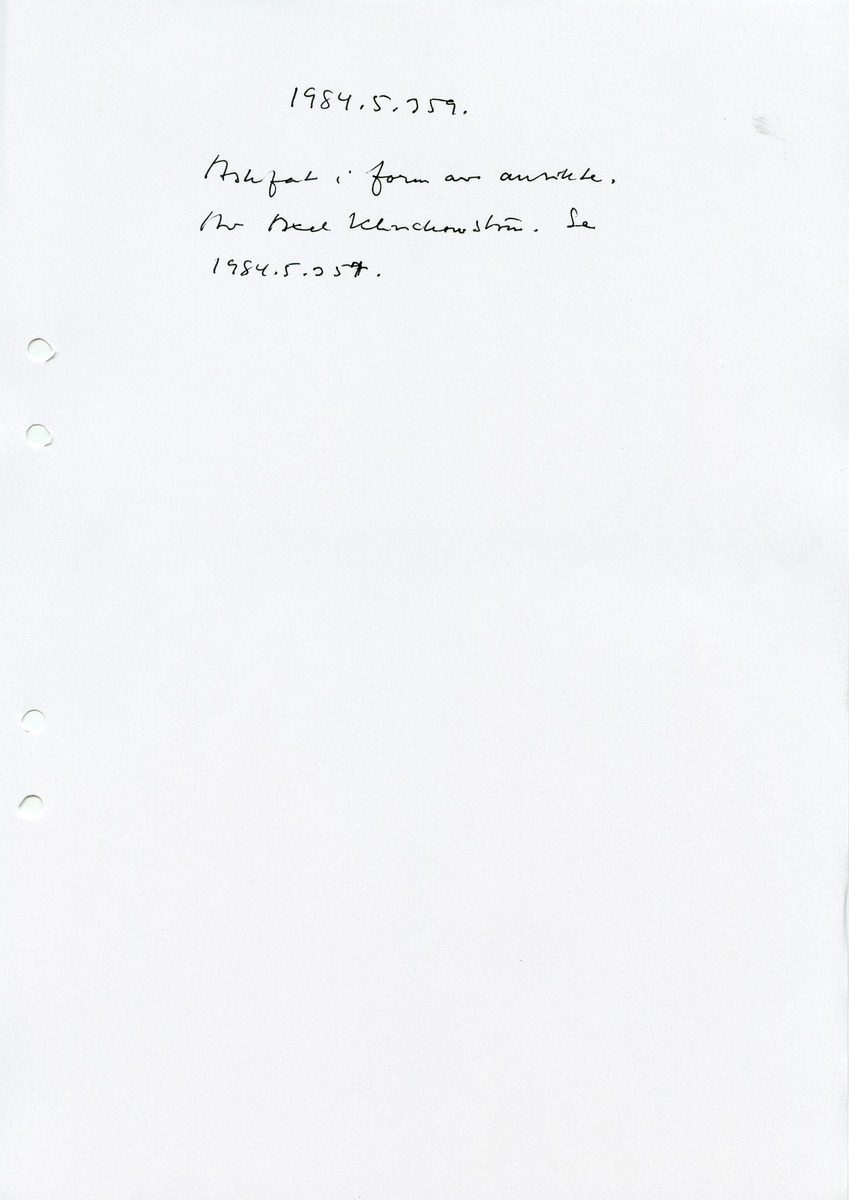 1984.5.259.
Askfat i form av ansikte.
Av Axel Klinckowström. Se
1984.5.257.